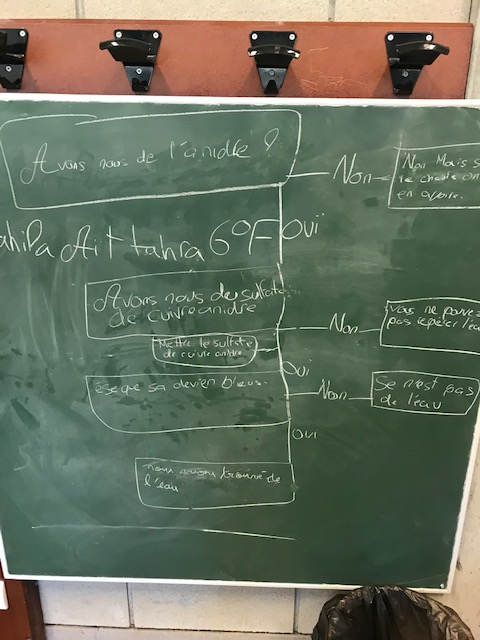 Avons nous de l'anidre ?
Non
Non Mais s
re chaufe on
en avoire.
Ait tahra 6°F
OUi
Avons nous du sulfate
de cuivre anidre
Non
Vous ne pouvez
pas repérer l'eau
Mettre le sulfate
de cuivre anidre
OUi
ese que sa devien bleus.
Non
Se n'est pas
de l'eau
OUi
nous avons trouvé de
l'eau